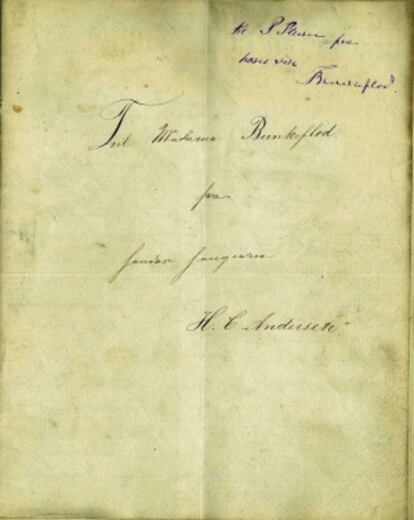 P Plum fra
hans ven
Bunkeflod.
Til Madame Bunkeflod
fra
hendes hengivne
H. C Andersen.